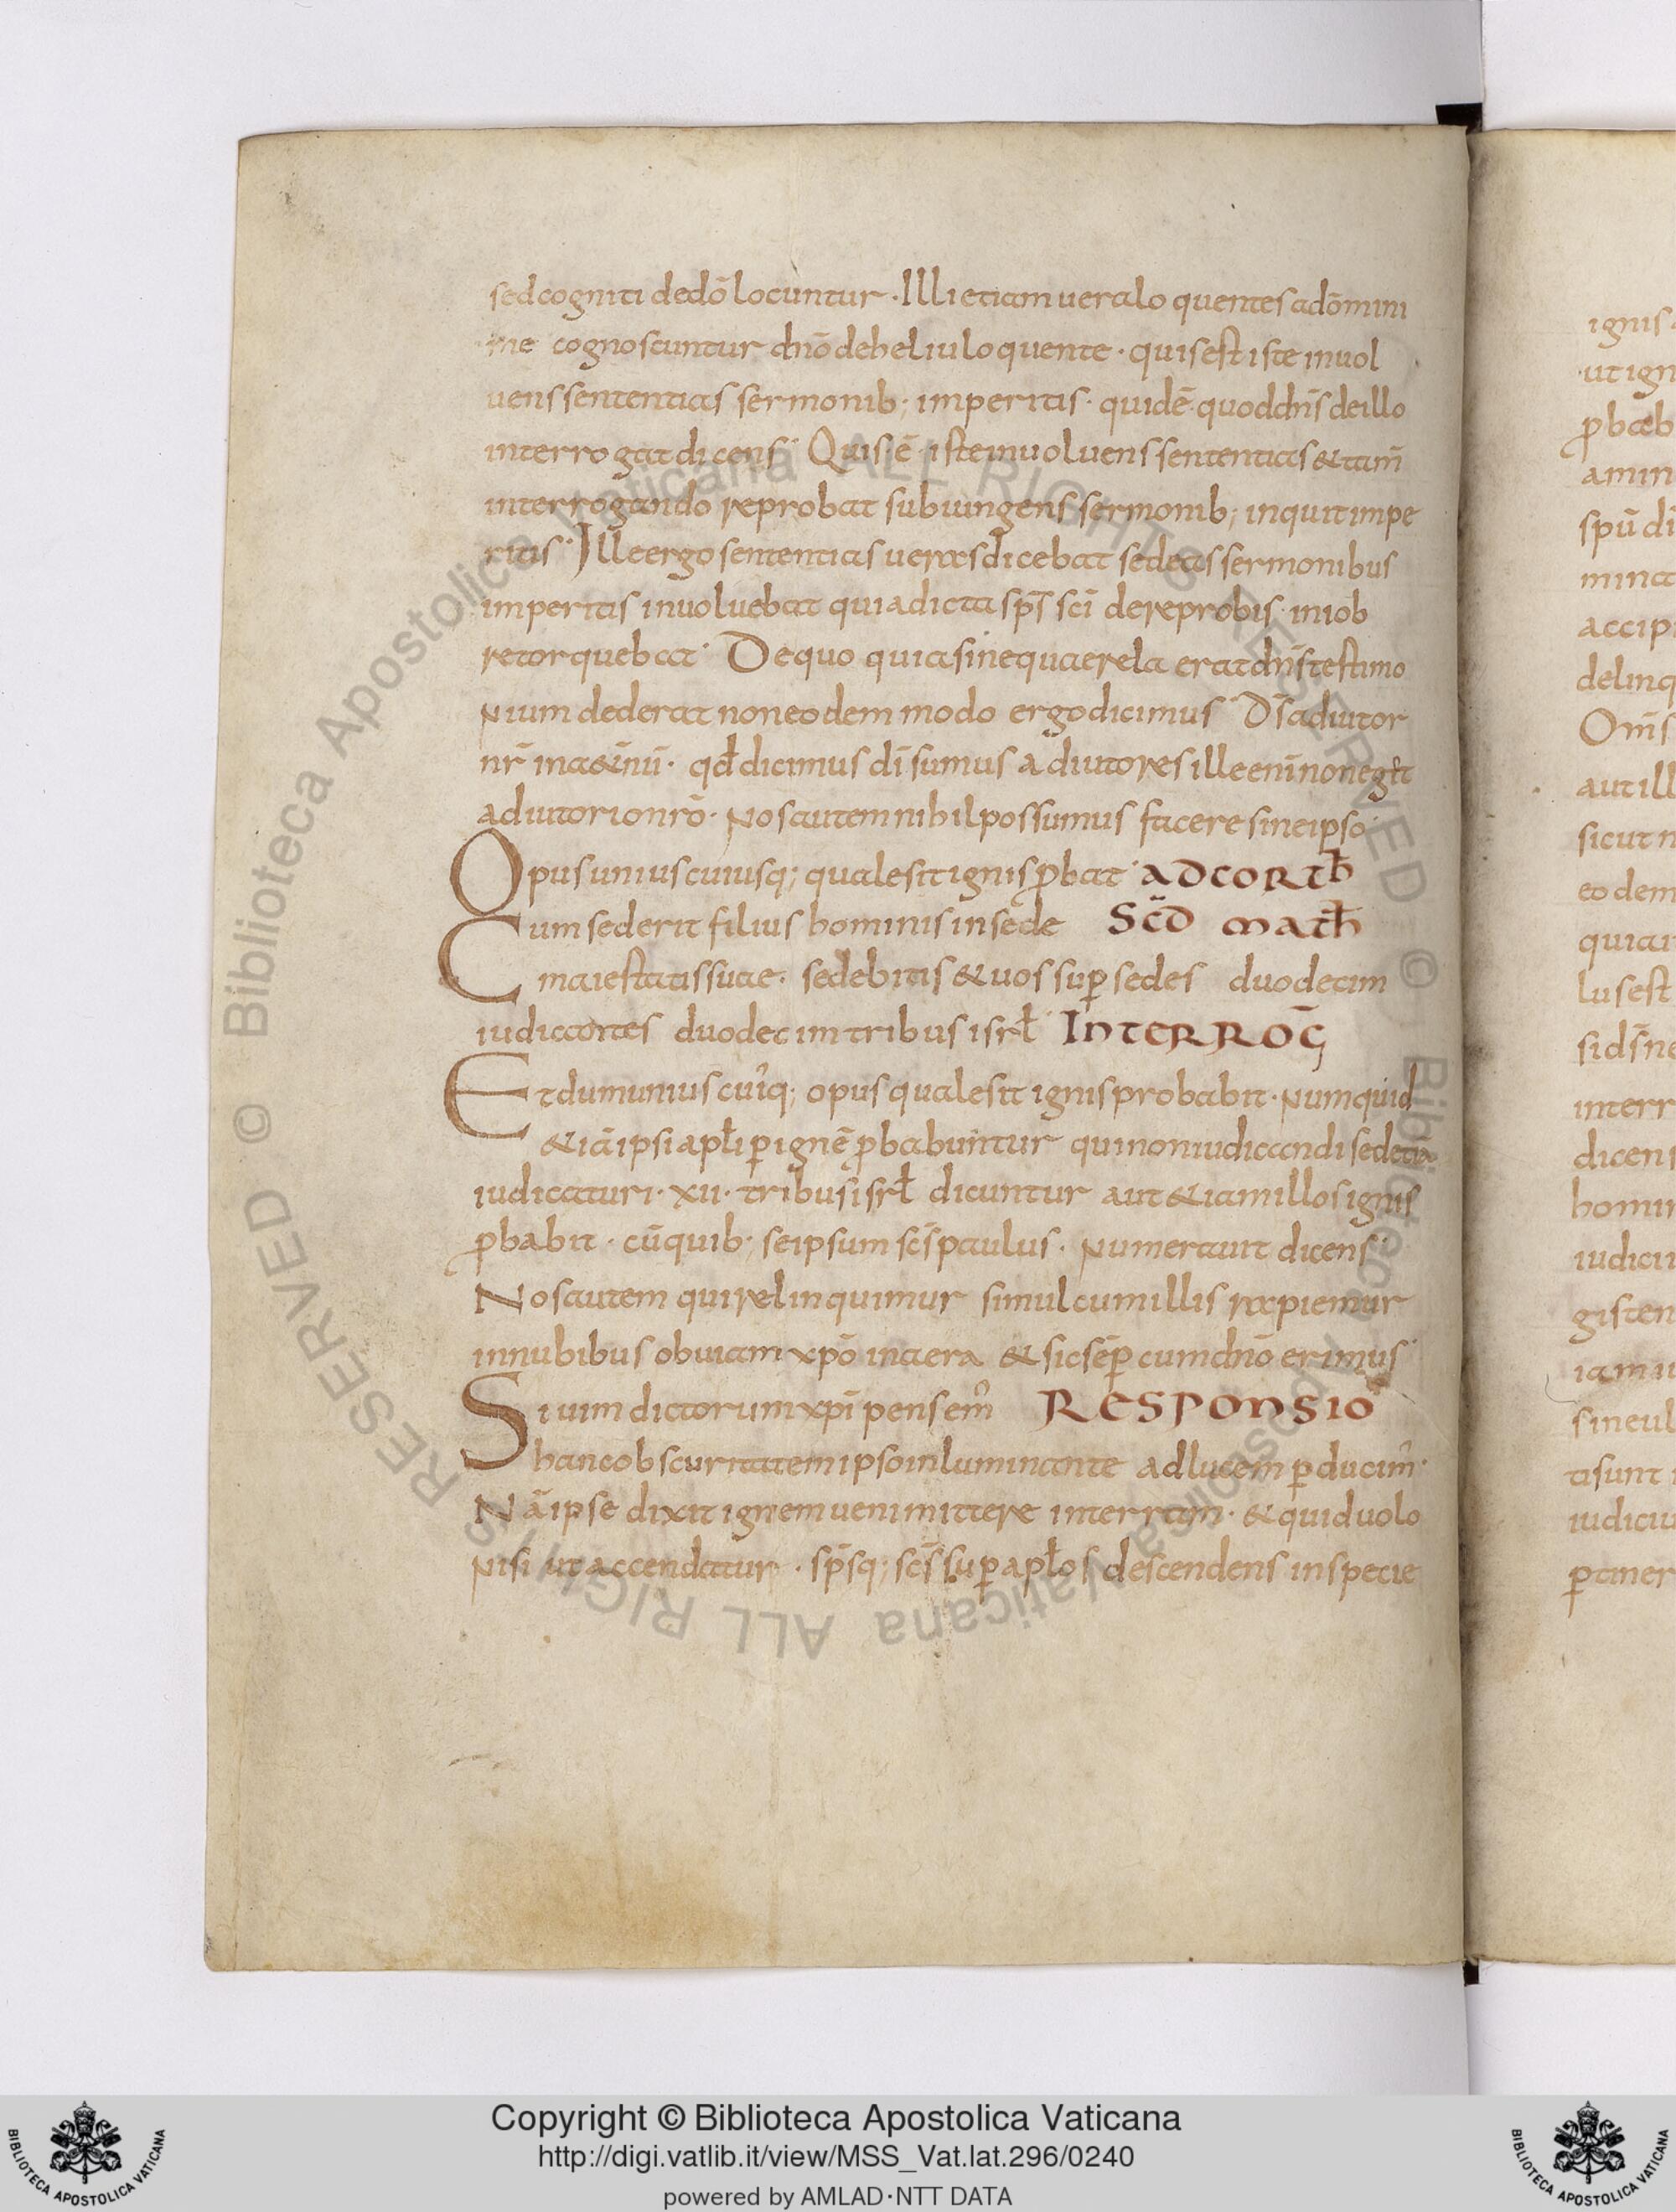 sed cogniti de dō locuntur · Illi etiam uera loquentes a dō mini
me cognoscuntur dn̄o de heliu loquente · quis est iste inuol
uens sententias sermonib; imperitis · quid ē · quod dn̄s de illo
interrogat dicens · Quis · ē · iste inuoluens sententias & tam̄
interrogando reprobat subiungens sermonib; inquit impe
ritis · Ille ergo sententias ueras dicebat sed eas sermonibus
imperitis inuoluebat quia dicta sp̄s sc̄i de reprobis · in iob
retorquebat · De quo quia sine quaerela erat dn̄s testimo
nium dederat non eodem modo ergo dicimus · D̄s adiutor
nr̄ in aet̄nū · qđ dicimus dī sumus adiutores ille enī non eget
adiutorio nr̄o · Nos autem nihil possumus facere sine ipso
Opus uniuscuiusq; quale sit ignis ꝓbat · AD CORTH̄
Cum sederit filius hominis in sede SCD̄ MATH̄
maiestatis suae · sedebitis & uos suꝑ sedes duodecim
iudicantes duodecim tribus isrł · INTERROḠ
Et dum unius cui᾿q; opus quale sit ignis probabit · Numquid
&iā ipsi apłi ꝑ ignē ꝓbabuntur qui non iudicandi sed etiā
iudicaturi · xii · tribus isrł dicuntur aut &iam illos ignis
ꝓbabit · cū quib; se ipsum sc̄s paulus · Numerauit dicens ·
Nos autem qui relinquimur simul cum illis rapiemur
in nubibus obuiam xp̄o in aera & sic sēꝑ cum dn̄o erimus ·
Si uim dictorum xp̄i pensem᾿ RESPONSIO
hanc obscuritatem ipso inluminante ad lucem ꝑducim᾿ ·
Nā ipse dixit ignem ueni mittere in terram · & quid uolo
Nisi ut accendatur · sp̄sq; sc̄s suꝑ apłos descendens in specie
ignis
ut ign
ꝓbab
amin
spū di
minat
accipi
delinq
Om̄s
aut ill
sicut n
eodem
quia
lus est
si d̄s ne
interr
dicens
homin
iudiciu
gisten
iam
sine ul
tis unt
iudiciu
ꝑtiner
© Biblioteca Apostolica Vaticana ALL RIGHTS RESERVED © Biblioteca Apostolica Vaticana ALL RIGHTS RESERVED
Copyright © Biblioteca Apostolica Vaticana
http://digi.vatlib.it/view/MSS_Vat.lat.296/0240
powered by AMLAD·NTT DATA
BIBLIOTECA APOSTOLICA VATICANA
BIBLIOTECA APOSTOLICA VATICANA